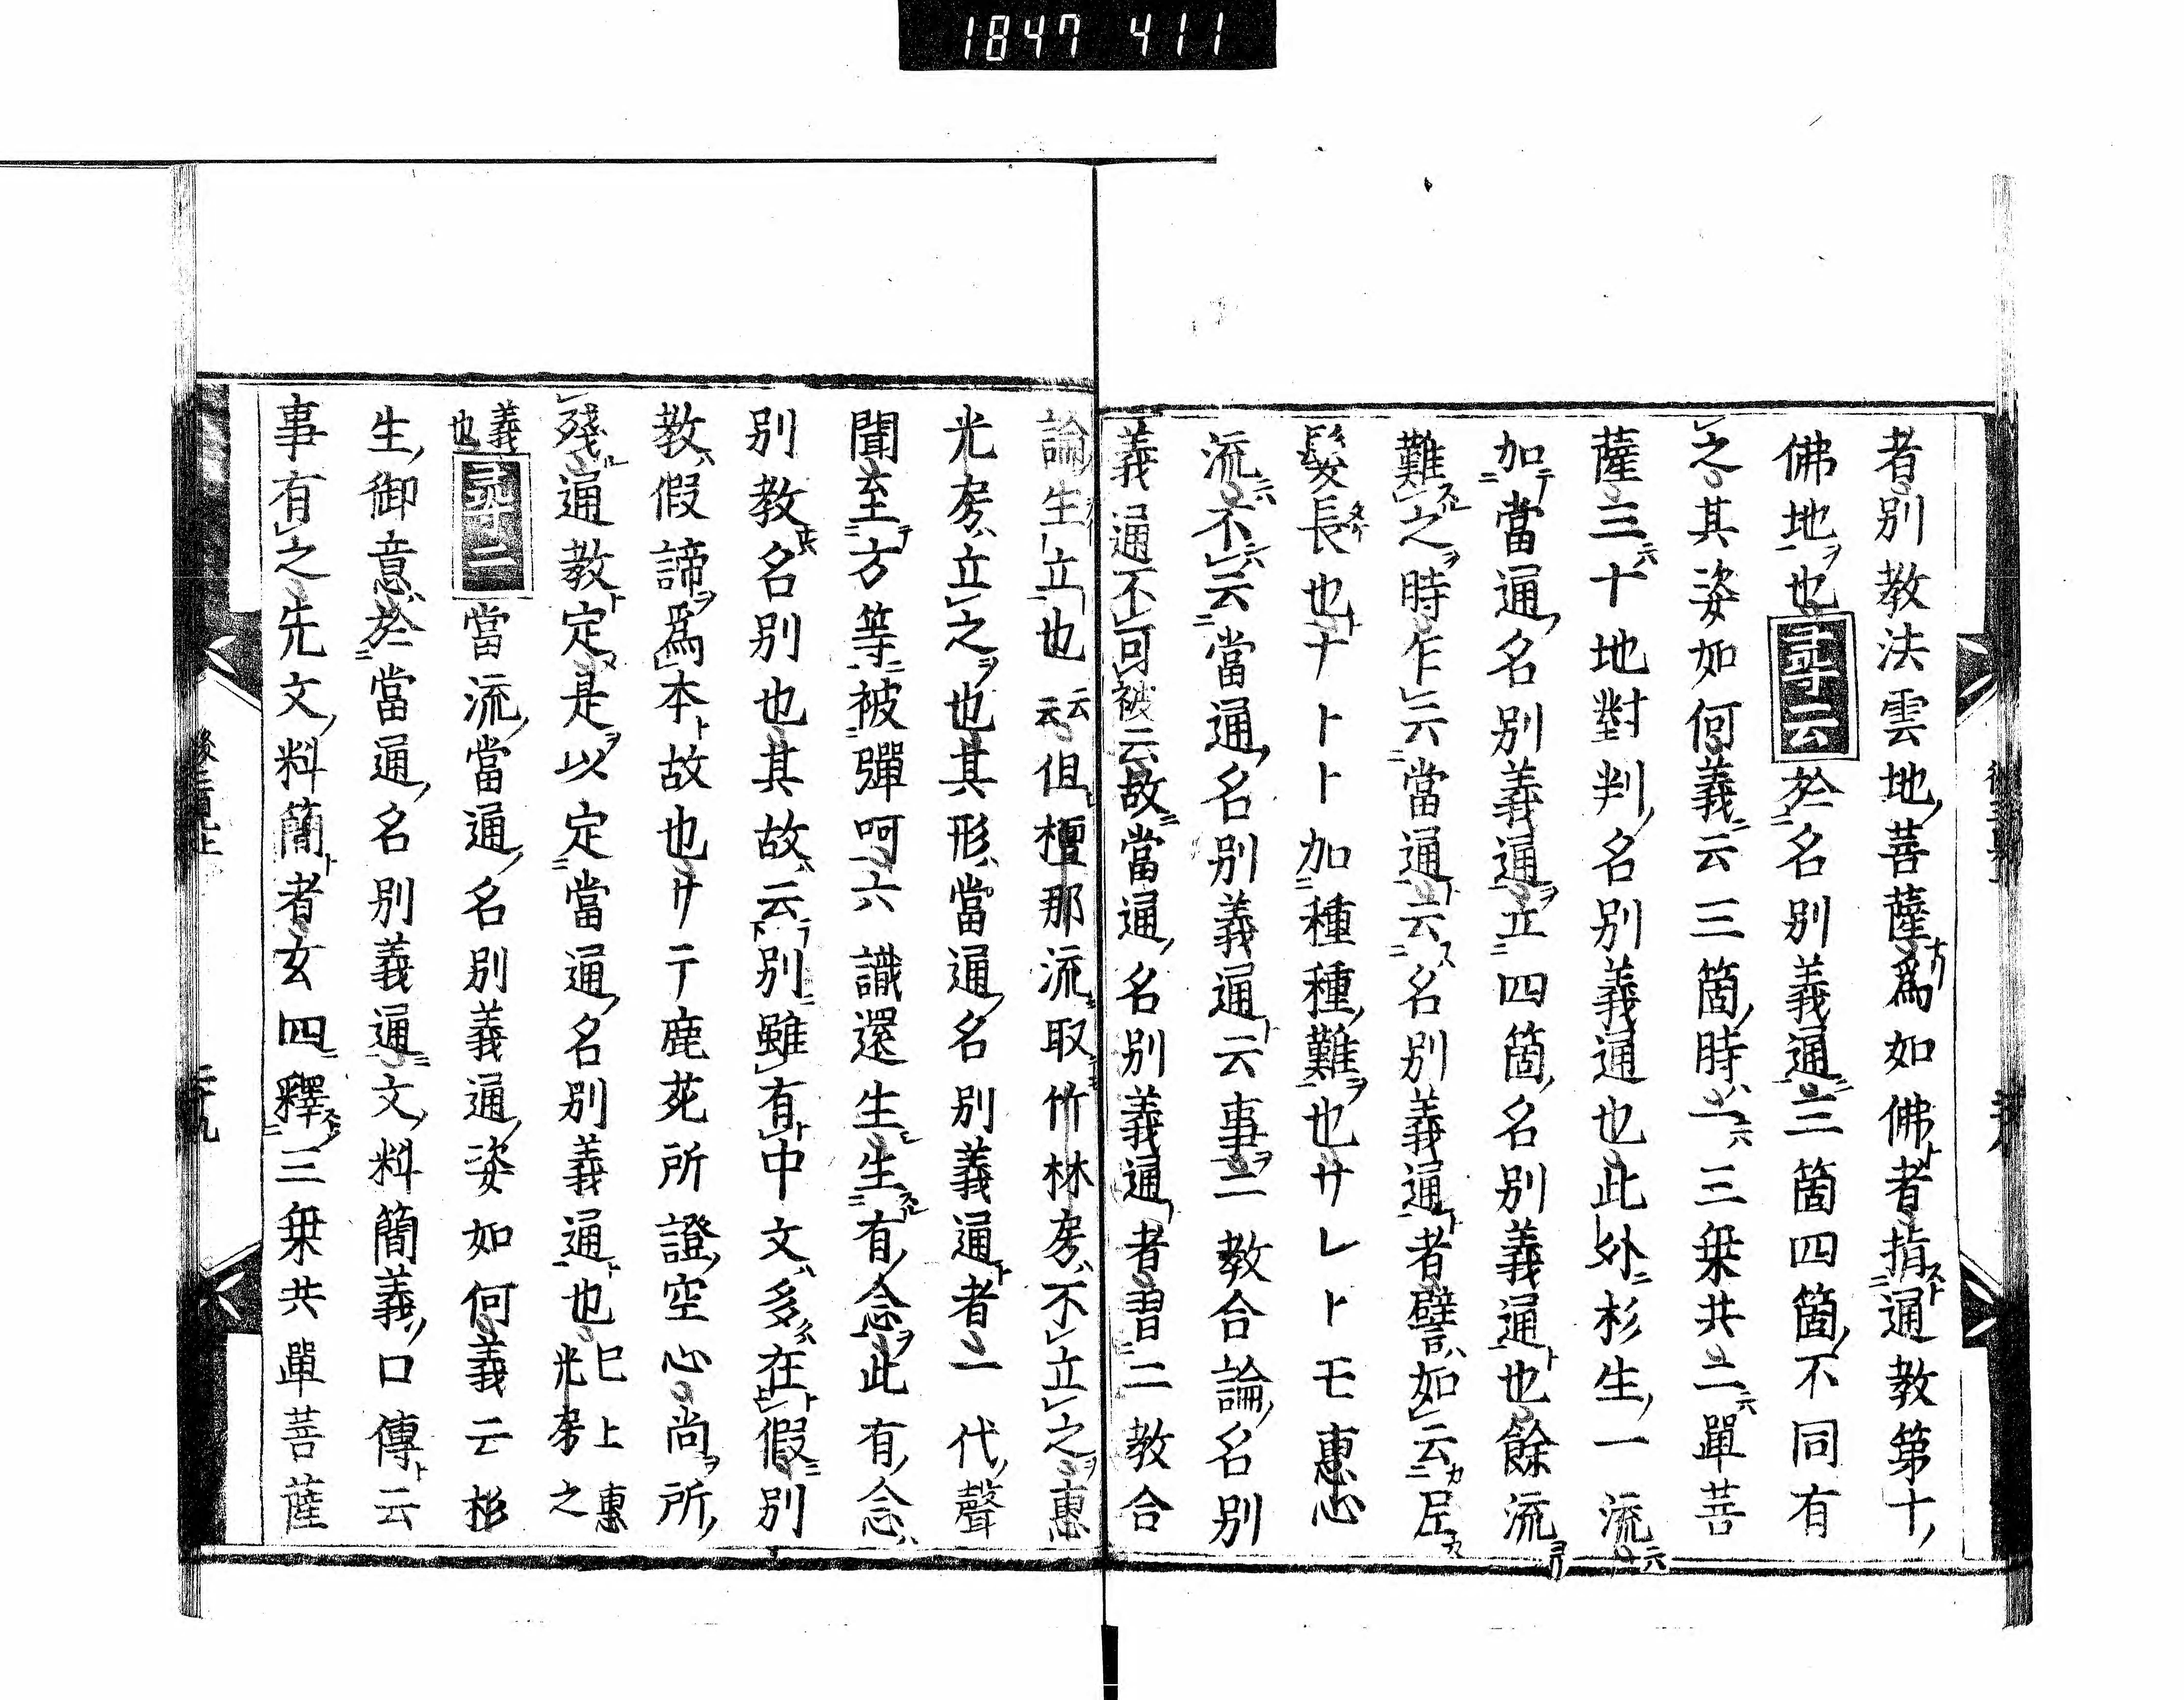 1847 411
者別教法雲地菩薩爲如佛者指通教第十
佛地也尋云於名別義通三箇四箇不同有
之其姿如何義云三箇時一三乗共二單菩
薩三十地對判名別義通也此外杉生一流
加當通名別義通立四箇名別義通也餘流
難之時乍云當通云名別義通者譬如云
髮長也ナトト加種種難也サレトモ惠心
流不云當通名別義通云事二教合論名別
義通不可被云故當通名別義通者習二教合
論生立也云云但檀那流取竹林房不立之惠
光房立之也其形當通名別義通者一代聲
聞至方等被彈呵六識還生生有念此有念
別教名別也其故云別雖有中文多在假別
教假諦爲本故也サテ鹿苑所證空心尚所
殘通教定是以定當通名別義通也已上惠光房之
義也尋二當流當通名別義通姿如何義云杉
生御意於當通名別義通文料簡義口傳云
事有之先文料簡者玄四釋三乗共單菩薩